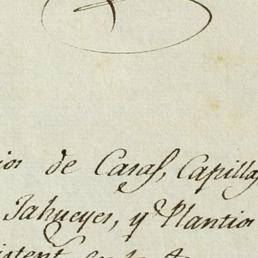 ios de Casas, Capillas
Jahueyes, y Plantios